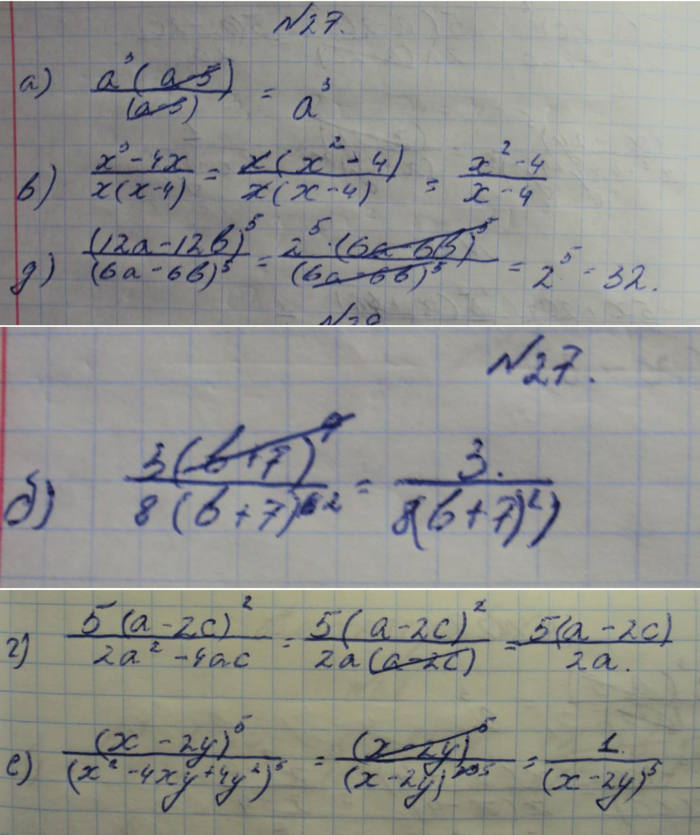 №27.
а) a³(a-5)/(a-5) = a³
в) x³-4x/x(x-4) = x(x²-4)/x(x-4) = x²-4/x-4
д) (12a-12b)⁵/(6a-6b)⁵ = 2⁵·(6a-6b)⁵/(6a-6b)⁵ = 2⁵ = 32.
№27.
б) 3(b+7)/8(b+7) = 3./8(b+7)²)
г) 5(a-2c)²/2a²-4ac = 5(a-2c)²/2a(a-2c) = 5(a-2c)/2a.
е) (x-2y)⁵/(x²-4xy+4y²)⁵ = (x-2y)⁵/(x-2y) = 1./(x-2y)⁵